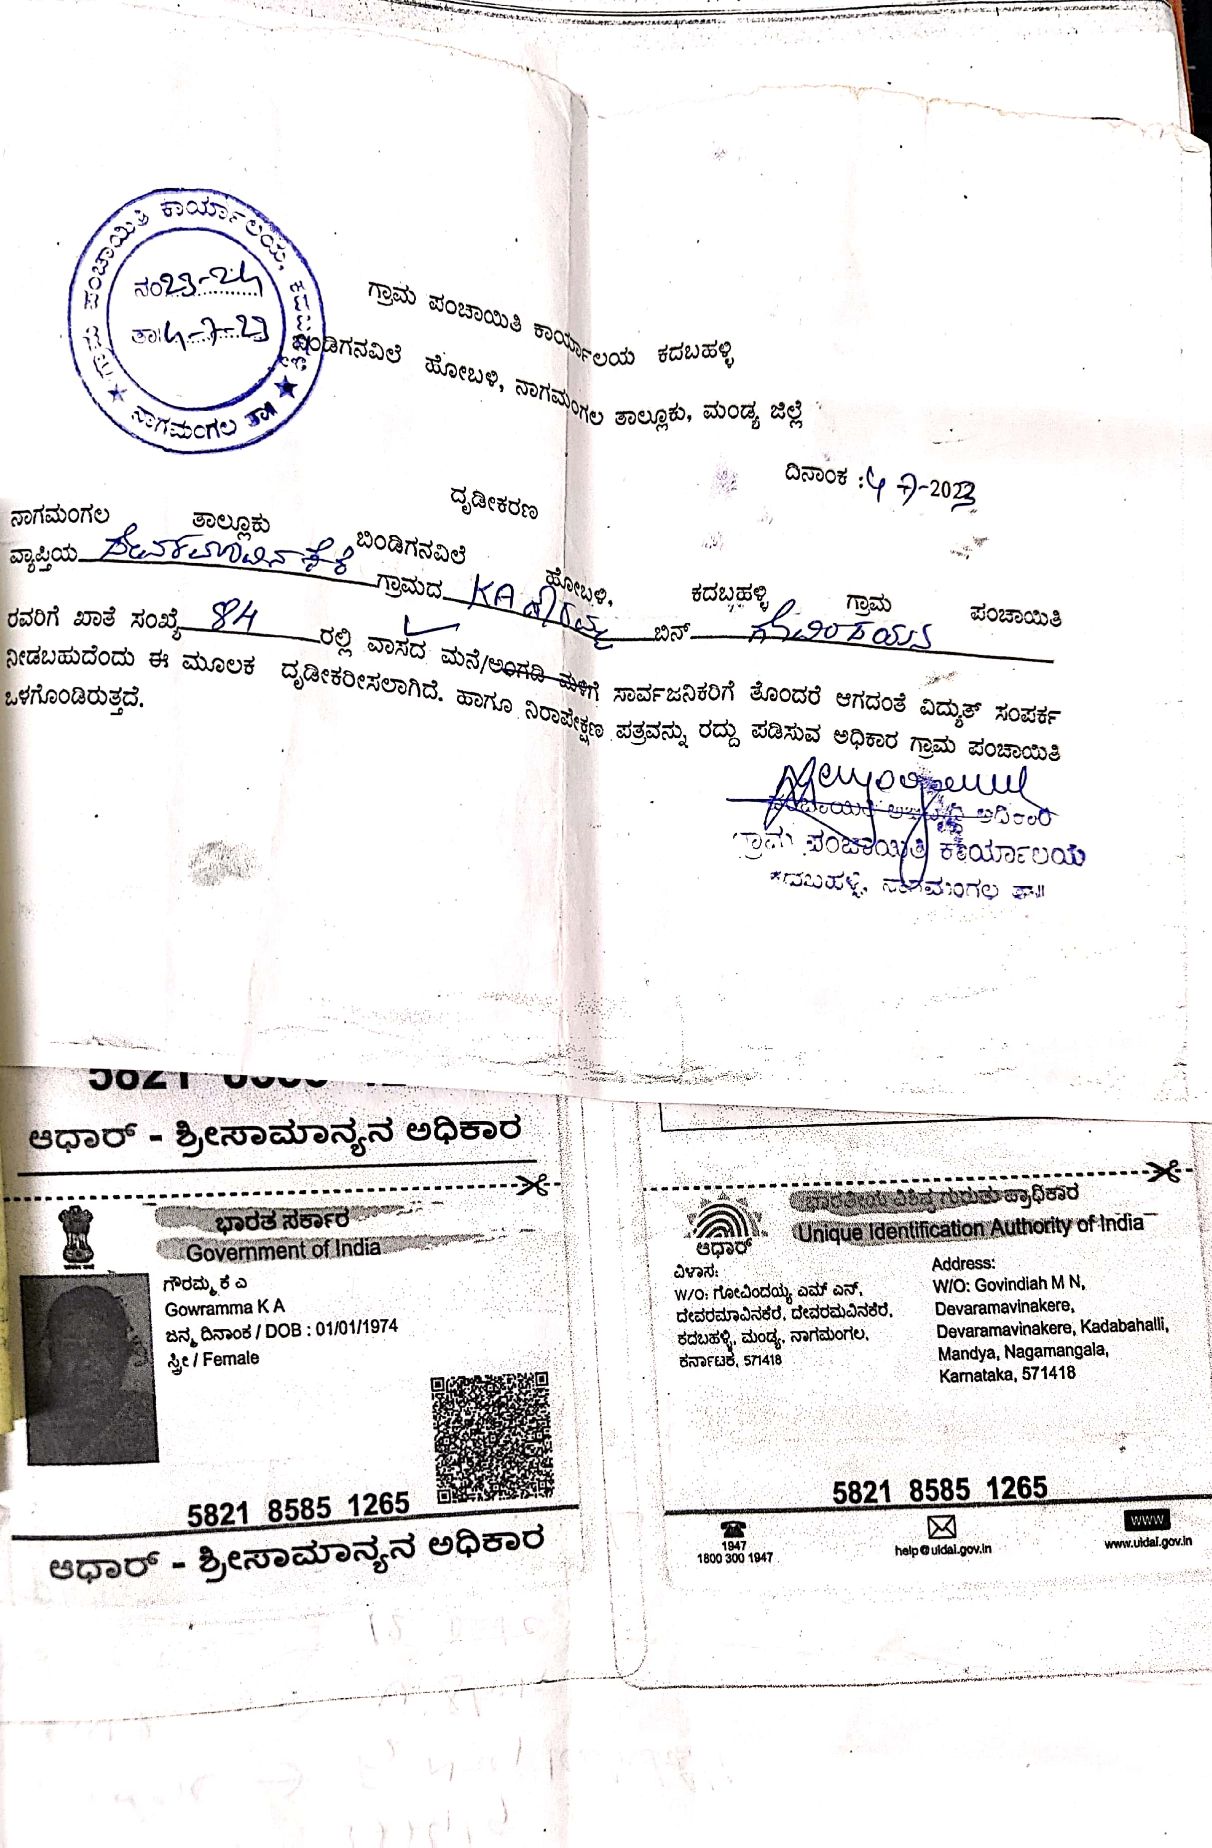 ಗ್ರಾಮ ಪಂಚಾಯಿತಿ ಕಾರ್ಯಾಲಯ, ಕದಬಹಳ್ಳಿ
ನಂ 23-24
ತಾ 4-7-23
ನಾಗಮಂಗಲ ತಾ॥
ಗ್ರಾಮ ಪಂಚಾಯಿತಿ ಕಾರ್ಯಾಲಯ ಕದಬಹಳ್ಳಿ
ಬಿಂಡಿಗನವಿಲೆ ಹೋಬಳಿ, ನಾಗಮಂಗಲ ತಾಲ್ಲೂಕು, ಮಂಡ್ಯ ಜಿಲ್ಲೆ
ದಿನಾಂಕ : 4-7-2023
ದೃಡೀಕರಣ
ನಾಗಮಂಗಲ ತಾಲ್ಲೂಕು ಬಿಂಡಿಗನವಿಲೆ ಹೋಬಳಿ, ಕದಬಹಳ್ಳಿ ಗ್ರಾಮ ಪಂಚಾಯಿತಿ
ವ್ಯಾಪ್ತಿಯ ಗ್ರಾಮದ KA ಬಿನ್
ರವರಿಗೆ ಖಾತೆ ಸಂಖ್ಯೆ 84 ರಲ್ಲಿ ವಾಸದ ಮನೆ/ಅಂಗಡಿ ಮಳಿಗೆ ಸಾರ್ವಜನಿಕರಿಗೆ ತೊಂದರೆ ಆಗದಂತೆ ವಿದ್ಯುತ್ ಸಂಪರ್ಕ
ನೀಡಬಹುದೆಂದು ಈ ಮೂಲಕ ದೃಡೀಕರೀಸಲಾಗಿದೆ. ಹಾಗೂ ನಿರಾಪೇಕ್ಷಣ ಪತ್ರವನ್ನು ರದ್ದು ಪಡಿಸುವ ಅಧಿಕಾರ ಗ್ರಾಮ ಪಂಚಾಯಿತಿ
ಒಳಗೊಂಡಿರುತ್ತದೆ.
ಪಂಚಾಯಿತಿ ಅಭಿವೃದ್ಧಿ ಅಧಿಕಾರಿ
ಗ್ರಾಮ ಪಂಚಾಯಿತಿ ಕಾರ್ಯಾಲಯ
ಕದಬಹಳ್ಳಿ, ನಾಗಮಂಗಲ ತಾ॥
5821
ಆಧಾರ್ - ಶ್ರೀಸಾಮಾನ್ಯನ ಅಧಿಕಾರ
ಭಾರತ ಸರ್ಕಾರ
Government of India
ಗೌರಮ್ಮ ಕೆ ಎ
Gowramma K A
ಜನ್ಮ ದಿನಾಂಕ / DOB : 01/01/1974
ಸ್ತ್ರೀ / Female
5821 8585 1265
ಆಧಾರ್ - ಶ್ರೀಸಾಮಾನ್ಯನ ಅಧಿಕಾರ
ಭಾರತೀಯ ವಿಶಿಷ್ಟ ಗುರುತು ಪ್ರಾಧಿಕಾರ
Unique Identification Authority of India
ಆಧಾರ್
ವಿಳಾಸ:
W/O: ಗೋವಿಂದಯ್ಯ ಎಮ್ ಎನ್,
ದೇವರಮಾವಿನಕೆರೆ, ದೇವರಮವಿನಕೆರೆ,
ಕದಬಹಳ್ಳಿ, ಮಂಡ್ಯ, ನಾಗಮಂಗಲ,
ಕರ್ನಾಟಕ, 571418
Address:
W/O: Govindiah M N,
Devaramavinakere,
Devaramavinakere, Kadabahalli,
Mandya, Nagamangala,
Karnataka, 571418
5821 8585 1265
1947
1800 300 1947
help@uidai.gov.in
www
www.uidai.gov.in